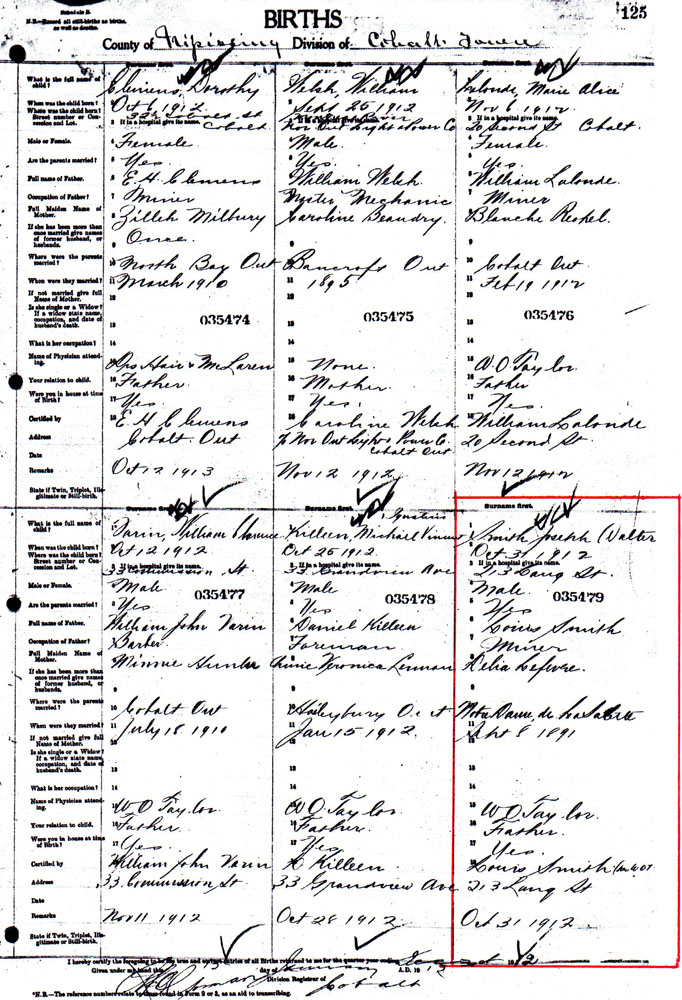 Schedule B
N.B.—Record all still-births as births, as well as deaths.
BIRTHS
125
County of Nipissing Division of Cobalt Town
Surname first. Surname first. Surname first.
What is the full name of child?
Clemens, Dorothy
Welsh, William
Lalonde, Marie Alice
When was the child born?
Oct 6 1912
Sept 26 1912
Nov 6 1912
Where was the child born? Street number or Concession and Lot.
If in a hospital give its name.
Cobalt
Nor Ont Light & Power Co
20 Second St Cobalt
Male or Female.
Female
Male
Female
Are the parents married?
Yes
Yes
Yes
Full name of Father.
E. H. Clemens
William Welsh
William Lalonde
Occupation of Father?
Miner
Master Mechanic
Miner
Full Maiden Name of Mother.
Zillah Milbury
Caroline Beaudry
Blanche
If she has been more than once married give names of former husband, or husbands.
Once
Where were the parents married?
North Bay Ont
Bancroft Ont
Cobalt Ont
When were they married?
March 1910
1895
Feb 19 1912
If not married give full Name of Mother.
Is she single or a Widow? If a widow state name, occupation, and date of husband's death.
035474
035475
035476
What is her occupation?
Name of Physician attending.
Drs Hair & McLaren
None
W O Taylor
Your relation to child.
Father
Mother
Father
Were you in house at time of Birth?
Yes
Yes
Yes
Certified by
E H Clemens
Caroline Welsh
William Lalonde
Address
Cobalt Ont
% Nor Ont Light & Power Co. Cobalt Ont
20 Second St.
Date
Remarks
Oct 12 1913
Nov 12 1912
Nov 12 1912
State if Twin, Triplet, Illegitimate or Still-birth.
Surname first. Surname first. Surname first.
What is the full name of child?
Varin, William Clarence
Killeen, Michael Vincent
Smith Joseph Walter
When was the child born?
Oct 12 1912
Oct 26 1912
Oct 31 1912
Where was the child born? Street number or Concession and Lot.
If in a hospital give its name.
33 Commission St.
33 Grandview Ave
213 Lang St.
Male or Female.
Male
Male
Male
035477
035478
035479
Are the parents married?
Yes
Yes
Yes
Full name of Father.
William John Varin
Daniel Killeen
Louis Smith
Occupation of Father?
Barber
Foreman
Miner
Full Maiden Name of Mother.
Minnie Hunter
Annie Veronica Lennan
Delia Lefevre
If she has been more than once married give names of former husband, or husbands.
Where were the parents married?
Cobalt Ont
Haileybury Ont
Notre Dame de la Salette
When were they married?
July 18 1910
Jan 15 1912
Sept 8 1891
If not married give full Name of Mother.
Is she single or a Widow? If a widow state name, occupation, and date of husband's death.
What is her occupation?
Name of Physician attending.
W O Taylor
W O Taylor
W O Taylor
Your relation to child.
Father
Father
Father
Were you in house at time of Birth?
Yes
Yes
Yes
Certified by
William John Varin
D Killeen
Louis Smith
Address
33 Commission St
33 Grandview Ave
213 Lang St
Date
Remarks
Nov 11 1912
Oct 28 1912
Oct 31 1912
State if Twin, Triplet, Illegitimate or Still-birth.
I hereby certify the foregoing to be true and correct entries of all Births returned to me for the quarter year ending
Given under my hand this day of January A.D. 19
Division Registrar of Cobalt
*N.B.—The reference numbers relate to those found in Form 2 or 3, as an aid to transcribing.